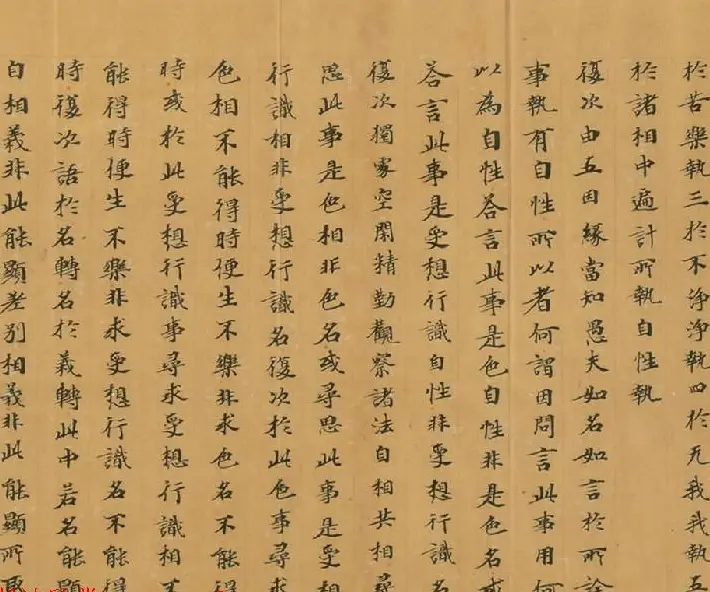 於苦樂執三於不淨淨執四於无我我執五
於諸相中遍計所執自性執
復次由五因緣當知愚夫如名如言於所詮
事執有自性所以者何謂因問言此事用何
以為自性答言此事是色自性非是色名或
答言此事是受想行識自性非受想行識名
復次獨處空閑精勤觀察諸法自相共相尋
思此事是色相非色名或尋思此事是受想
行識相非受想行識名復次於此色事尋求
色相不能得時便生不樂非求色名不能得
時或於此受想行識事尋求受想行識相不
能得時便生不樂非求受想行識名不能得
時復次語於名轉名於義轉此中若名能顯
自相義非此能顯差別相義非此能顯所